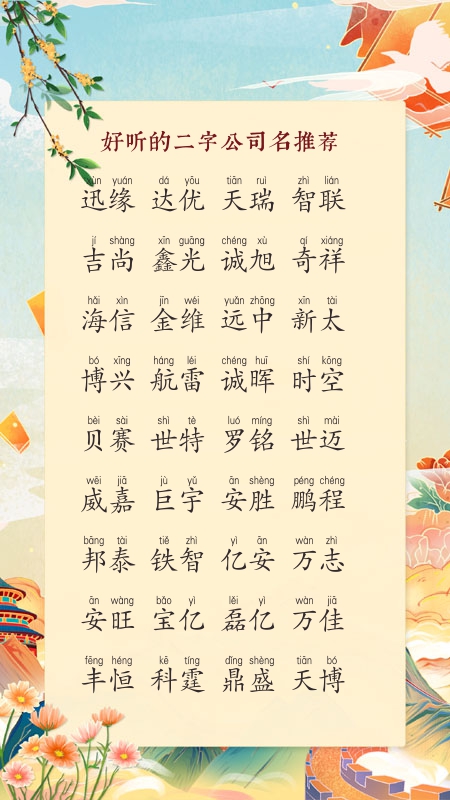 好听的二字公司名推荐
xùn yuán dá yōu tiān ruì zhì lián
迅缘 达优 天瑞 智联
jí shàng xīn guāng chéng xù qí xiáng
吉尚 鑫光 诚旭 奇祥
hǎi xìn jīn wéi yuǎn zhōng xīn tài
海信 金维 远中 新太
bó xīng háng léi chéng huī shí kōng
博兴 航雷 诚晖 时空
bèi sài shì tè luó míng shì mài
贝赛 世特 罗铭 世迈
wēi jiā jù yǔ ān shèng péng chéng
威嘉 巨宇 安胜 鹏程
bāng tài tiě zhì yì ān wàn zhì
邦泰 铁智 亿安 万志
ān wàng bǎo yì lěi yì wàn jiā
安旺 宝亿 磊亿 万佳
fēng héng kē tíng dǐng shèng tiān bó
丰恒 科霆 鼎盛 天博